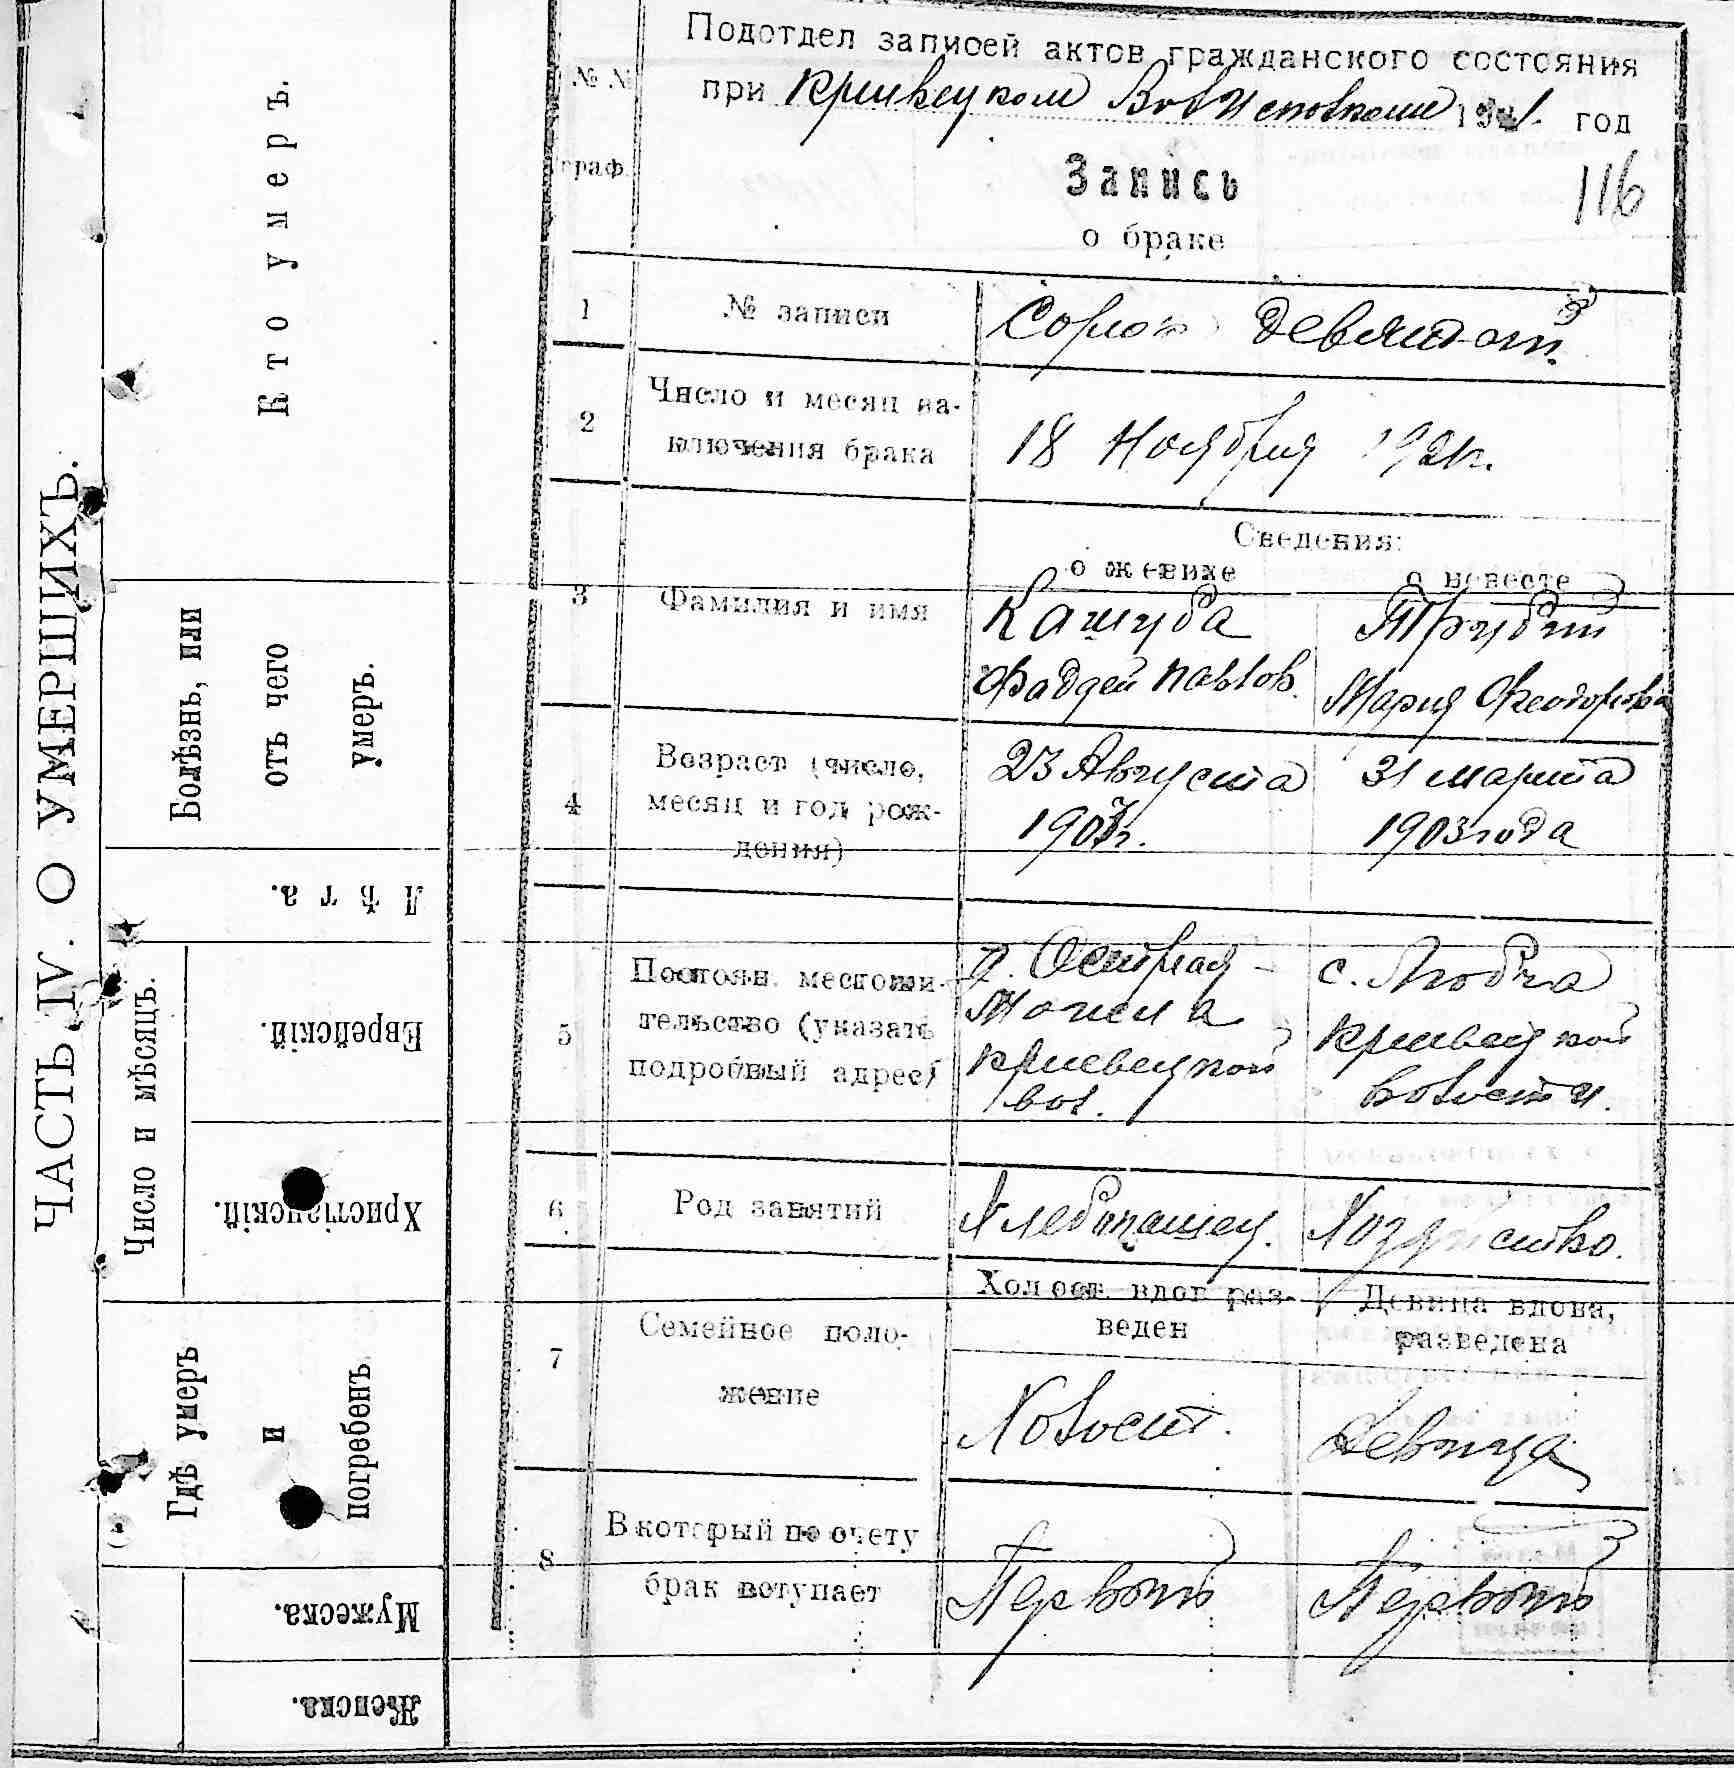 ЧАСТЬ IV. О УМЕРШИХЪ.
Кто умеръ.
Болѣзнь, или
отъ чего
умеръ.
Лѣта.
Число и мѣсяцъ.
Еврейскій.
Христіанскій.
Гдѣ умеръ
и
погребенъ
Мужеска.
Женска.
№ №
граф.
Подотдел записей актов гражданского состояния
при Кривецком Волисполкоме 1921. год
116
Запись
о браке
1 № записи Сорок девятый
2 Число и месяц за-
ключения брака 18 Ноября 1921г.
Сведения:
о женихе о невесте
3 Фамилия и имя Кашуба
Фаддей Павлов. Мария Феодоровна
4 Возраст (число,
месяц и год рож-
дения) 23 Августа 31 марта
1903 года
5 Постоян. местожи-
тельство (указать
подробный адрес) д. Острая-
Могила
Кривецкой
вол. с. Любча
Кривецкой
волости.
6 Род занятий Хлебопашец. Хозяйство.
7 Семейное поло-
жение Холост. вдов раз-
веден Девица вдова,
разведена
Холост. Девица
8 В который по счету
брак вступает Первый Первый